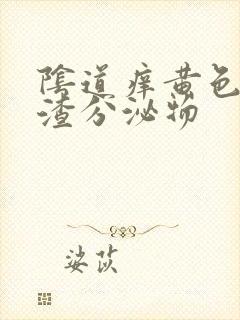 陰道痒黄色
渣分泌物
娑茨